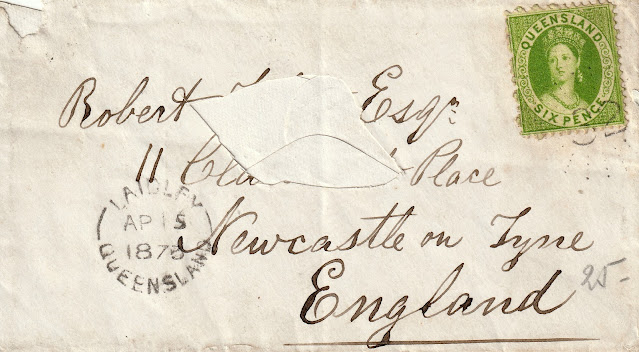 QUEENSLAND
SIX PENCE
Robert Esqr
11 Place
LAIDLEY
AP 15
1878
QUEENSLAND
Newcastle on Tyne
England
25-